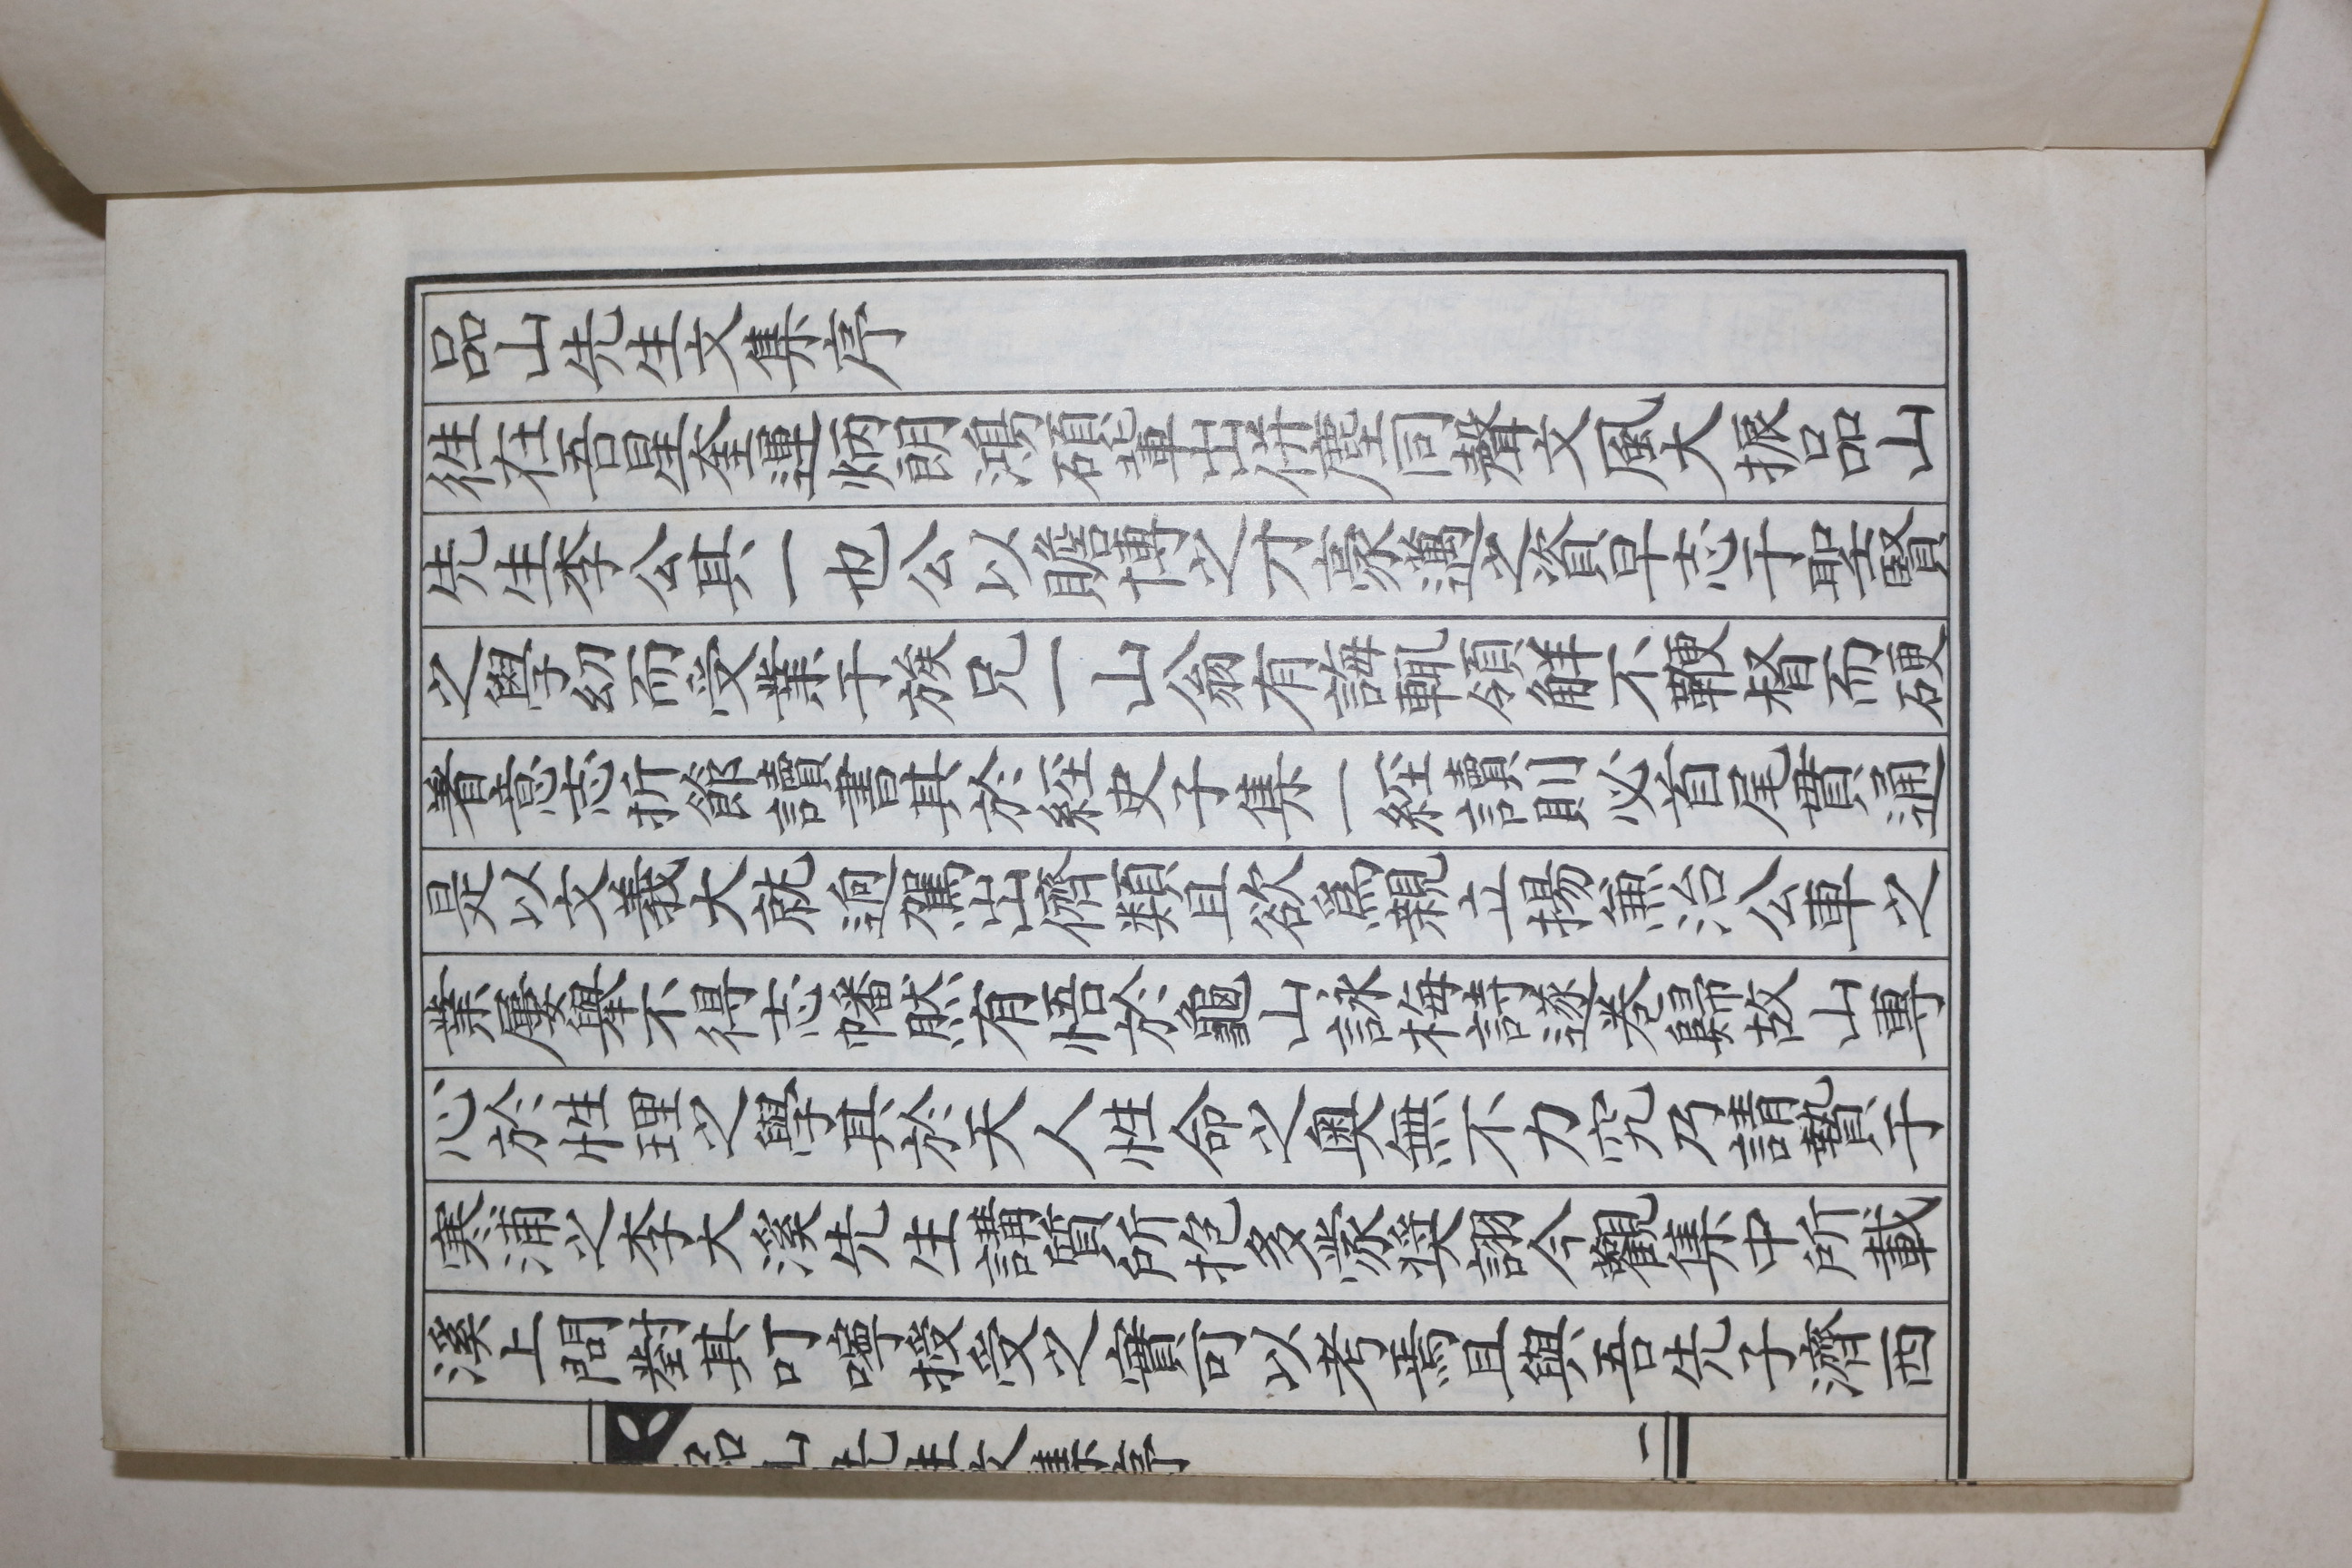 品山先生文集序
往在吾星奎運炳朗鴻碩輩出幷塵同聲文風大振品山
先生李公其一也公以贍博之才豪邁之資早志于聖賢
之學幼而受業于族兄一山翁有誨輒領解不鞭督而硬
着意志折節讀書其於經史子集一經讀則必首尾貫通
是以文義大就逈駕出儕類且欲爲親立揚兼治公車之
業屢擧不得志幡然有悟於龜山詠梅詩遂卷歸故山專
心於性理之學其於天人性命之奧無不力究乃請贄于
寒浦之李大溪先生講質所抱多蒙奬詡今觀集中所載
溪上問對其叮嚀授受之實可以考焉且與吾先子濟西
品山先生文集序
一